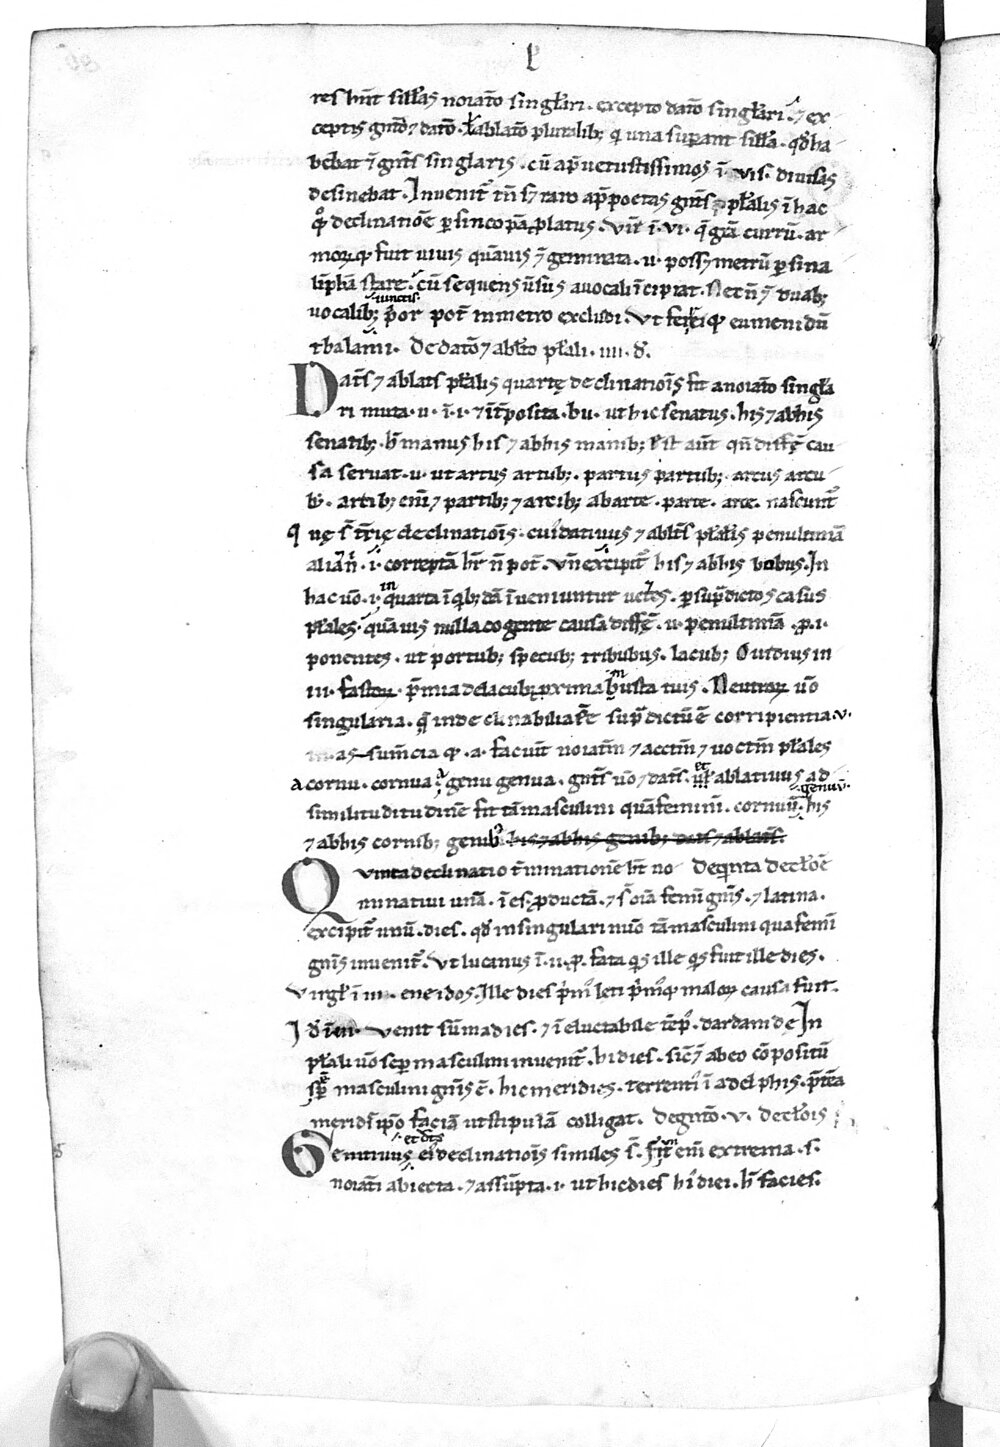 res hnt sillas noiato singlari. excepto dato singlari. ⁊ ex
ceptis gntō ⁊ datō. ł ablatō pluralib; qi una supant silła. qđ ha
bebat ī gnīs singlaris. cū ap uetustissimos ī. uis. diuisas
desinebat. Inuenit tn̄ ⁊ raro ap poetas gnīs płalis ī hac
declinatiōe p sincopā platus. Vir̄ ī. vi. q̄ grā currū. ar
morq; fuit uiuis quāuis ī geminata. u. poss; metrū p sina
liphā stare. cū sequens usus a uocali īcipiat. Nec n̄ ē duab;
uocalib; iunctis p̄or pot̄ in metro excludi. Vt ferrei q; eumenidū
thalami. De datō ⁊ abłto płali. iiii. d.
Dats ⁊ ablats płalis quartę declinatiōis fit a noiato singla
ri muta. u. ī. i. ⁊ īt̄posita. bu. ut hic senatus. his ⁊ abhis
senatib; h̄ manus his ⁊ abhis manib; Est aut̄ qn̄ diffę̄ cau
sa seruat. u. ut artus artub;. partus partub; arcus arcu
b;. artib; eni ⁊ partib; ⁊ arcib; ab arte. parte. arce. nascunt̄
q nę s̄ t̄rię declinatiōis. cui datiuus ⁊ ablts płalis penultimā
aliā n̄. i. correptā hr̄ n̄ pot̄. Vn̄ excipit̄ his ⁊ abhis bobus. In
hac uo. i. in quarta ī qib; dā īueniuntur uetres. p sup̄dictos casus
płales. quāuis nulla cogente causa diffę̄. u. penultimā. p. i.
ponentes. ut portub; specub; tribubus. lacub; Ouidius in
iii. fastor. p̄mia de lacub; pxima busta tuis. Neutror uo
singularia. q̄ indeclinabilia sup̄dictū ē corripientia. u.
assumcia q. a. faciunt noiatm̄ ⁊ acctm̄ ⁊ uoctm̄ płales
a cornu. cornua. genu genua. gnīs uo ⁊ dats. et ablatiuus ad
similitudituidinē fit tā masculini quā feminini. cornuū. genuū. his
⁊ abhis cornib; genib; his ⁊ abhis genib; dats ⁊ ablats.
Quinta declinatio t̄minationē ht̄ no De qinta declōe
minatiui unā. ī es. pductā. ⁊ s̄ oīa femini gnīs. ⁊ latina.
excipit̄ unū. dies. qđ in singulari nūo tā masculini qua femini
gnīs inuenit̄. Vt lucanus ī. ii. p. fata qs ille qs fuit ille dies.
Virgł ī iiii. eneidos. Ille dies p̄m leti p̄m q; malor causa fuit.
Venit sūma dies. ⁊ īeluctabile tēp. dardanide In
płali uo semp masculini inuenit̄. hi dies. sic ⁊ ab eo cōpositū
semp masculini gnīs ē. hic meridies. terrenti ī adelphis. p̄tea
merid ipo faciā ut stipulā colligat. De gnto. v. declois
Genitiuus et dts ei declinatiōis similes s̄. fit eni extrema. s.
noiati abiecta. ⁊ assūpta. i. ut hic dies hi diei. h̄ facies.